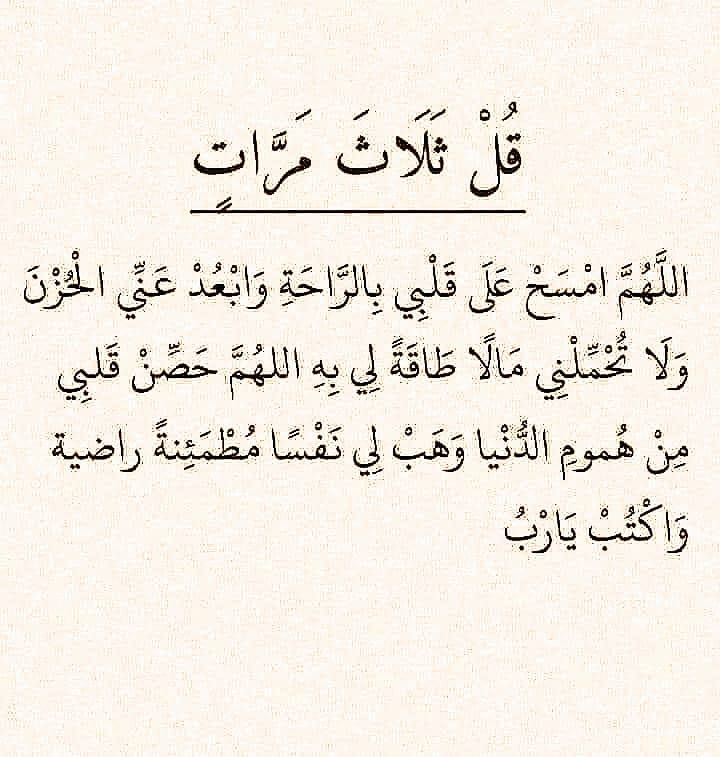 قُلْ ثَلَاثَ مَرَّاتٍ
اللَّهُمَّ امْسَحْ عَلَى قَلْبِي بِالرَّاحَةِ وَابْعُدْ عَنِّي الْحُزْنَ
وَلَا تُحْمِّلْنِي مَالًا طَاقَةً لِي بِهِ اللهُمَّ حَصِّنْ قَلبِي
مِنْ هُمومِ الدُّنْيا وَهَبْ لِي نَفْسًا مُطْمَئِنةً راضية
وَاكْتُبْ يَارْبُ